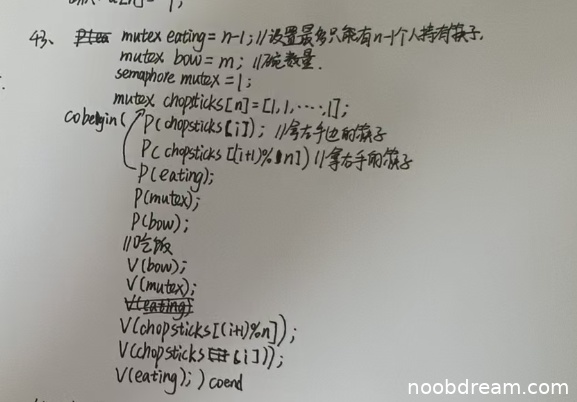 43、 mutex eating = n-1; //设置最多只能有n-1个人持有筷子.
mutex bow = m; //碗数量.
semaphore mutex = 1;
mutex chopsticks[n] = [1,1,····,1];
cobegin( P(chopsticks[i]); //拿左手边的筷子
P(chopsticks[(i+1)%n]) //拿右手的筷子
P(eating);
P(mutex);
P(bow);
//吃饭
V(bow);
V(mutex);
V(eating)
V(chopsticks[(i+1)%n]);
V(chopsticks[i]);
V(eating); ) coend
noobdream.com